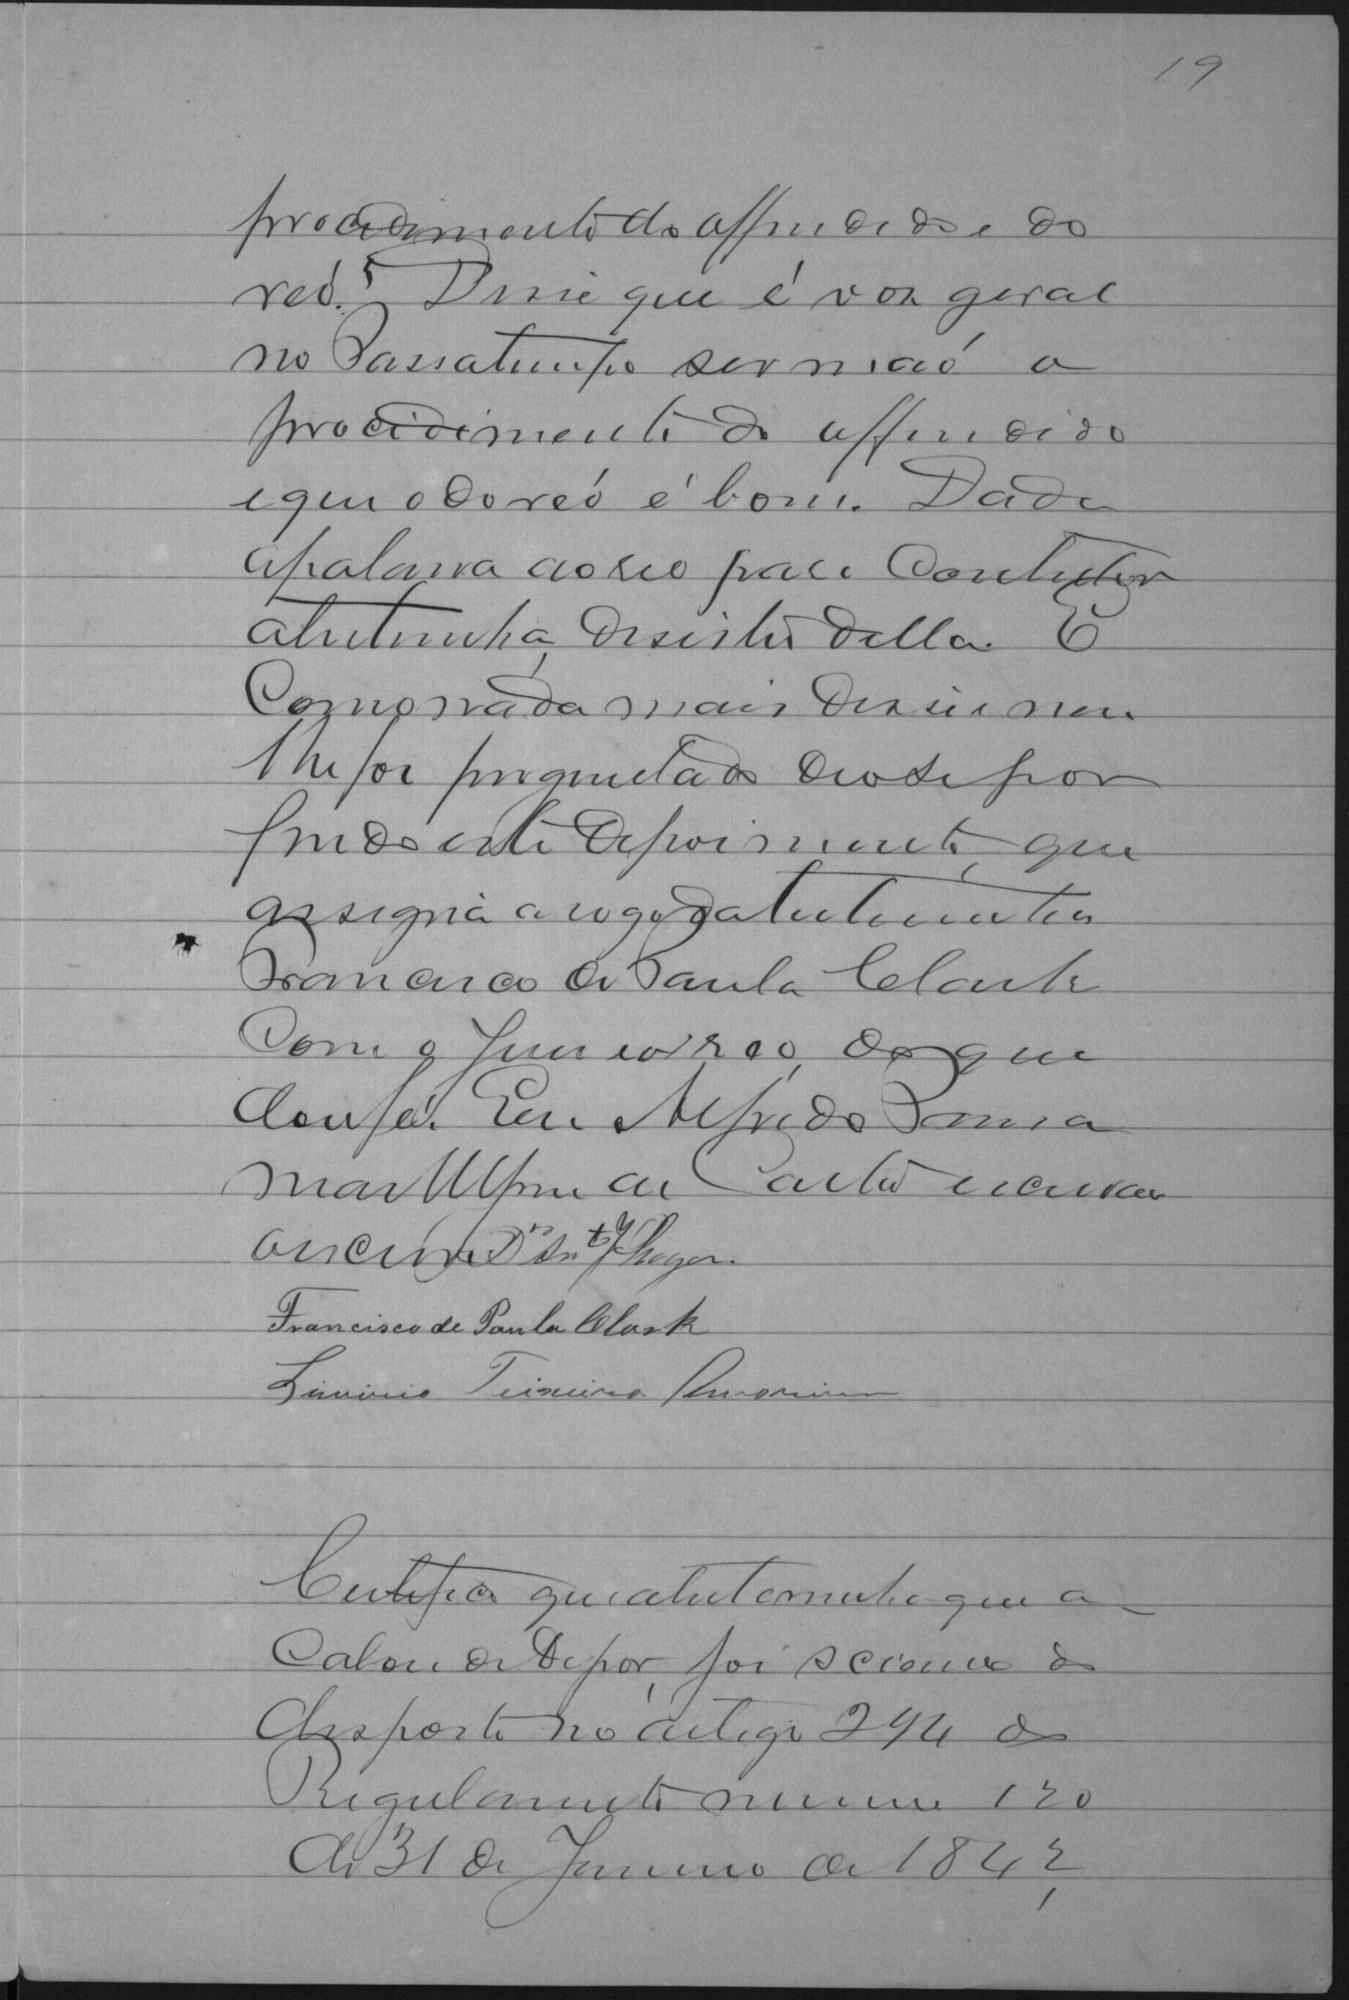 19
procedimento do offendido e do
reó? Disse que é voz geral
no Passatempo ser maó o
procidimento do offendido
e que o do reó é bom. Dada
a palavra ao reo para contestar
a testemunha, desistio della. E
como nada mais disse e nem
lhe foi preguntado deo-se por
findo este depoimento, que
assigna a rogo da testemunha
Francisco de Paula Clark
com o Juiz e o reo, do que
dou fé. Eu Alfredo
de Castro escrivão
o escrevi
Francisco de Paula Clark
Teixeira Amorim
Certifico que a testemunha que a-
cabou de depor, foi sciente do
disposto no artigo 294 do
Regulamento numero 120
de 31 de Janeiro de 1842,